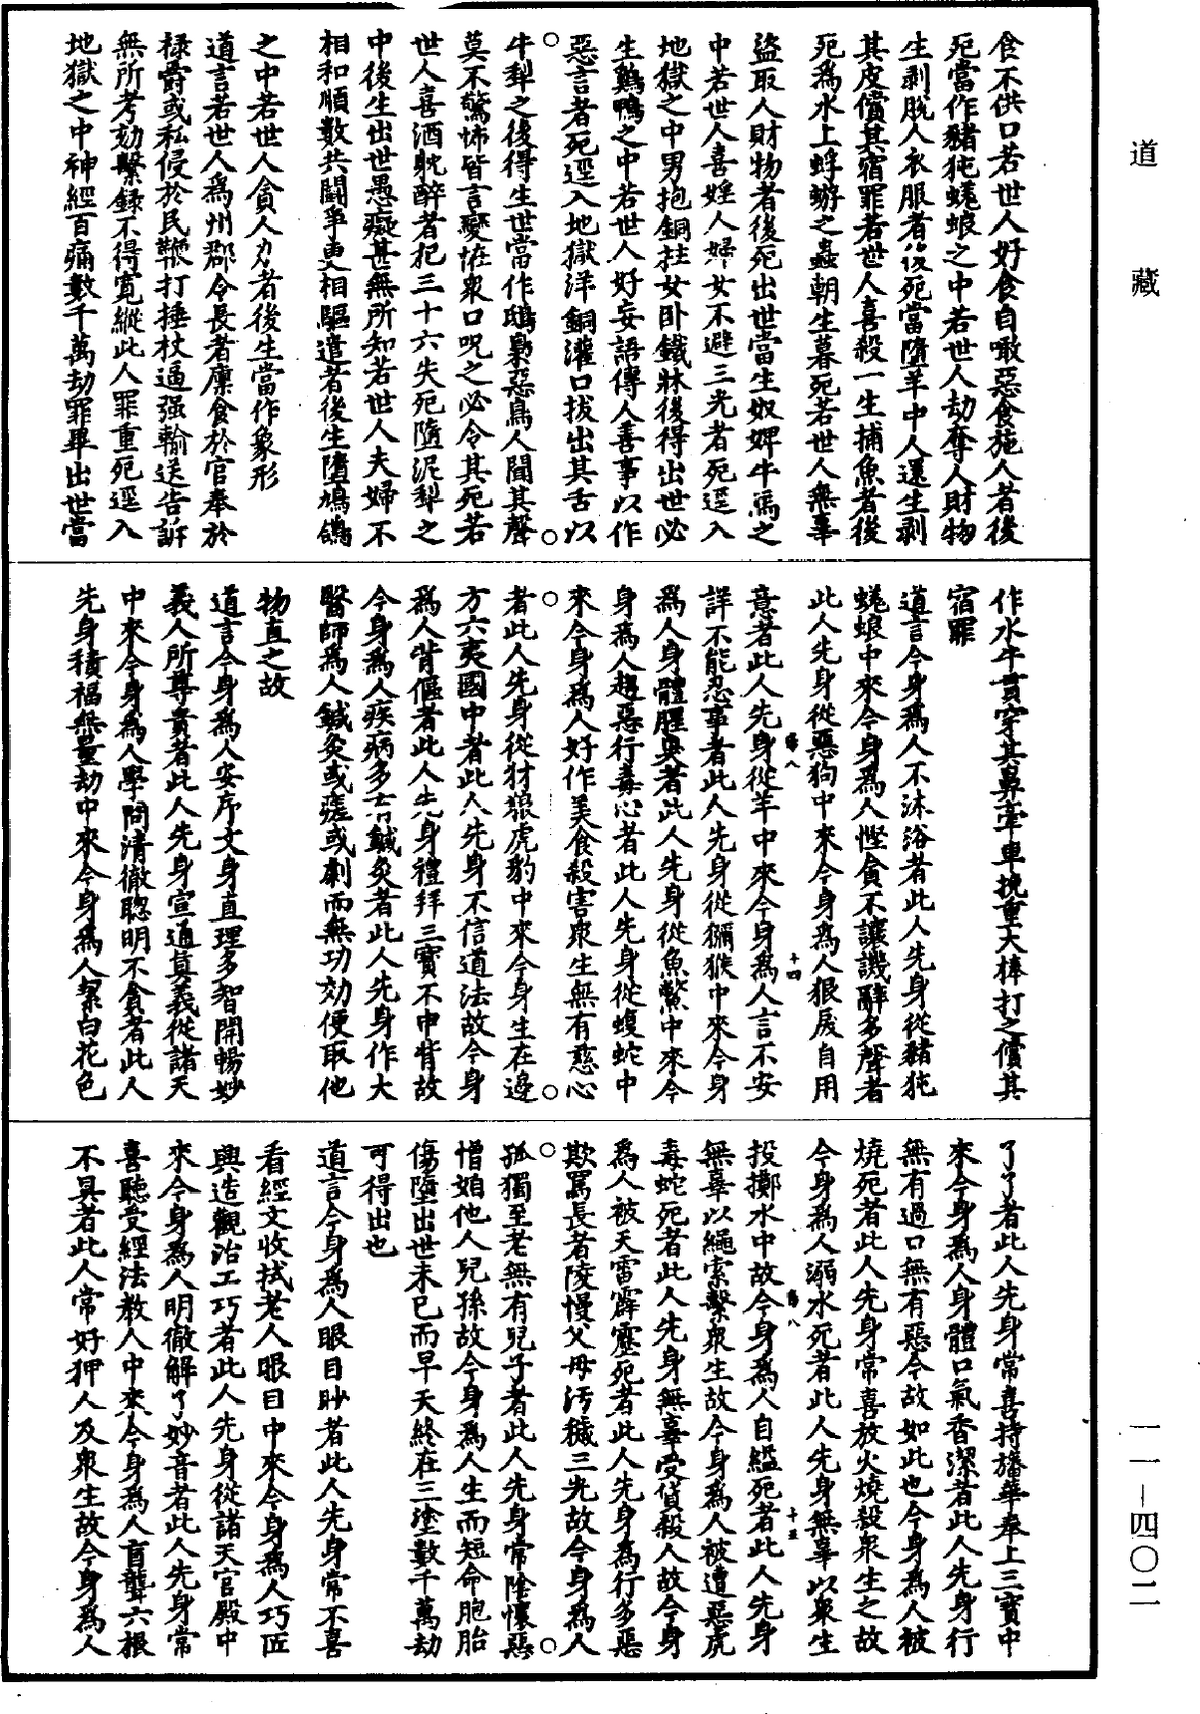 道藏
食不供口若世人好食自噉惡食施人者後
死當作豬㹠蜣蜋之中若世人劫奪人財物
生剥脫人衣服者後死當墮羊中人還生剥
其皮償其宿罪若世人喜殺一生捕魚者後
死為水上蜉蝣之蟲朝生暮死若世人無事
盜取人財物者後死出世當生奴婢牛馬之
中若世人喜婬人婦女不避三光者死逕入
地獄之中男抱銅柱女卧鐵牀後得出世必
生鷄鴨之中若世人好妄語傳人善事以作
惡言者死逕入地獄洋銅灌口拔出其舌以
牛犁之後得生世當作鴟梟惡鳥人聞其聲
莫不驚怖皆言變恠衆口呪之必令其死若
世人喜酒躭醉者犯三十六失死墮泥犁之
中後生出世愚癡甚無所知若世人夫婦不
相和順數共鬪爭更相驅遣者後生墮鳩鴿
之中若世人貪人力者後生當作象形
道言若世人為州郡令長者廩食於官奉於
祿爵或私侵於民鞭打捶杖逼强輸送告訴
無所考劾繫録不得寬縱此人罪重死逕入
地獄之中神經百痛數千萬劫罪畢出世當
作水牛貫穿其鼻牽車挽重大棒打之償其
宿罪
道言今身為人不沐浴者此人先身從豬㹠
蜣蜋中來今身為人慳貪不讓譏辭多聲者
此人先身從惡狗中來今身為人狠戾自用
意者此人先身從羊中來今身為人言不安
詳不能忍事者此人先身從獼猴中來今身
為人身體腥臭者此人先身從魚鱉中來今
身為人趨惡行毒心者此人先身從蝮蛇中
來今身為人好作美食殺害衆生無有慈心
者此人先身從豺狼虎豹中來今身生在邊
方六夷國中者此人先身不信道法故今身
為人背傴者此人先身禮拜三寶不申背故
今身為人疾病多者鍼灸者此人先身作大
醫師為人鍼灸或瘥或劇而無功効便取他
物直之故
道言今身為人安序文身直理多智開暢妙
義人所尊貴者此人先身宣通真義從諸天
中來今身為人學問清徹聰明不貪者此人
先身積福無量劫中來今身為人絜白花色
了了者此人先身常喜持旛華奉上三寶中
來今身為人身體口氣香潔者此人先身行
無有過口無有惡今故如此也今身為人被
燒死者此人先身常喜放火燒殺衆生之故
今身為人溺水死者此人先身無辜以衆生
投擲水中故今身為人自縊死者此人先身
無辜以繩索繫衆生故今身為人被遭惡虎
毒蛇死者此人先身無辜受貨殺人故今身
為人被天雷霹靂死者此人先身為行多惡
欺罵長者陵慢父母汚穢三光故今身為人
孤獨至老無有兒子者此人先身常陰懷惡
憎妬他人兒孫故今身為人生而短命胞胎
傷墮出世未已而早夭終在三塗數千萬劫
可得出也
道言今身為人眼目眇者此人先身常不喜
看經文收拭老人眼目中來今身為人巧匠
興造觀治工巧者此人先身從諸天官殿中
來今身為人明徹解了妙音者此人先身常
喜聽受經法教人中來今身為人盲聾六根
不具者此人常好狎人及衆生故今身為人
一一－四〇二